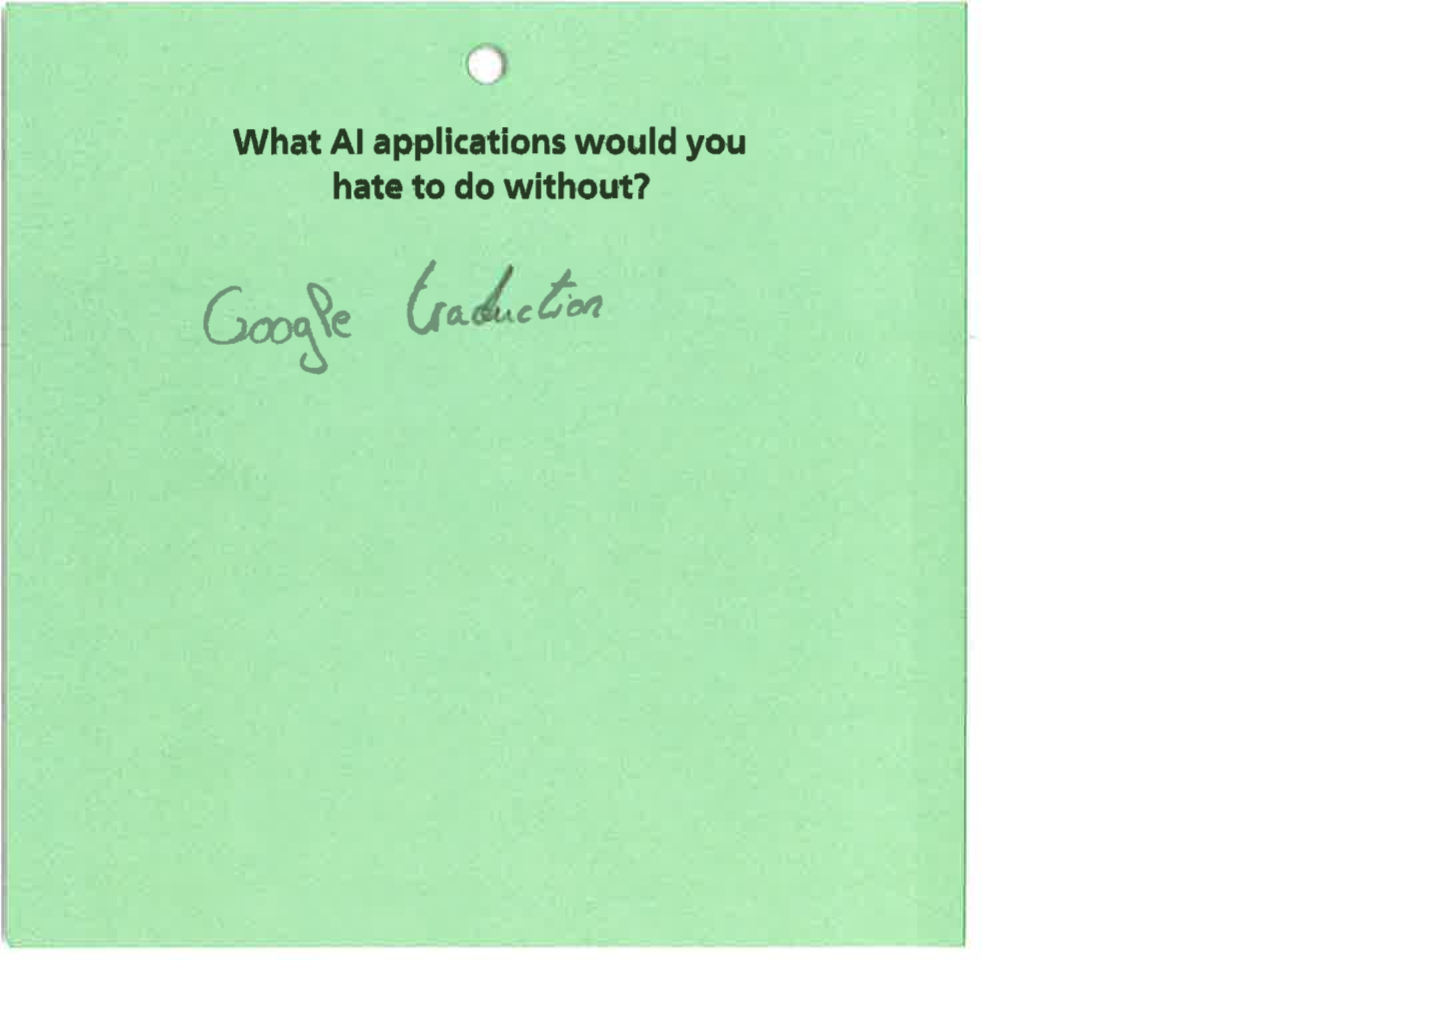 What AI applications would you
hate to do without?
Google traduction